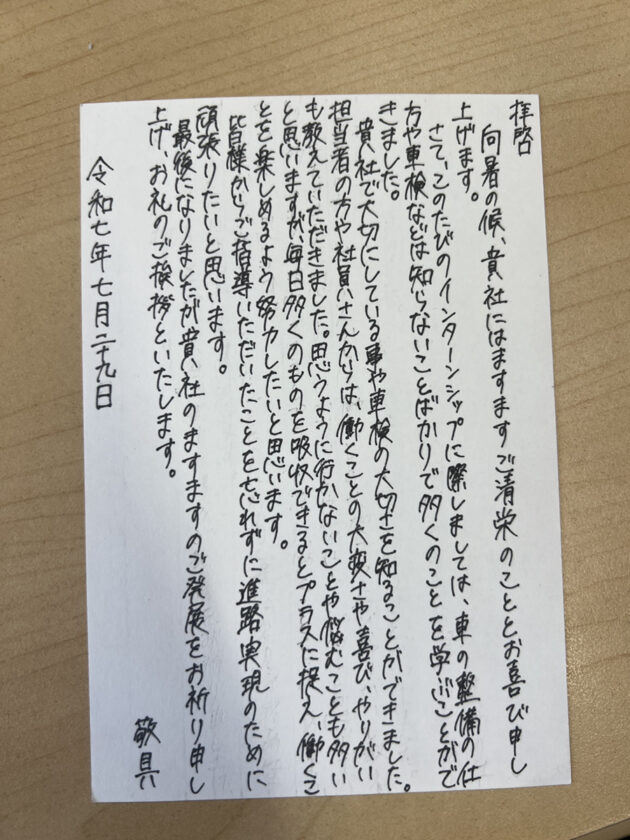 拝啓
向暑の候、貴社にはますますご清栄のこととお喜び申し
上げます。
さて、このたびのインターンシップに際しましては、車の整備の仕
方や車検などは知らないことばかりで多くのことを学ぶことがで
きました。
貴社で大切にしている車や車検の大切さを知ることができました。
担当者の方や社員さんからは、働くことの大変さや喜び、やりがい
も教えていただきました。思うように行かないことや悩むことも多い
と思いますが、毎日多くのものを吸収できるとプラスに捉え、働くこ
とを楽しめるよう努力したいと思います。
皆様からご指導いただいたことを忘れずに進路実現のために
頑張りたいと思います。
最後になりましたが貴社のますますのご発展をお祈り申し
上げ、お礼のご挨拶といたします。
敬具
令和七年七月二十九日